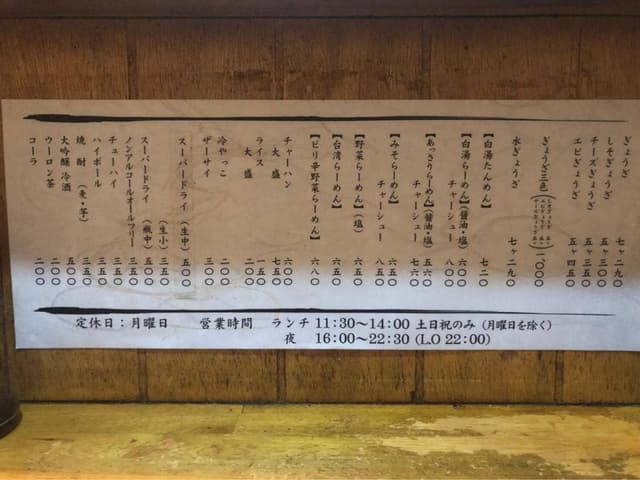 ぎょうざ 七ヶ二九〇
しそぎょうざ 五ヶ三〇〇
チーズぎょうざ 五ヶ三五〇
エビぎょうざ 五ヶ四五〇
ぎょうざ三色 一〇〇〇
水ぎょうざ 七ヶ二九〇
【白湯たんめん】 七二〇
【白湯らーめん】(醤油・塩) 六〇〇
チャーシュー 八〇〇
【あっさりらーめん】(醤油・塩) 五六〇
チャーシュー 七六〇
【みそらーめん】 六五〇
チャーシュー 八五〇
【野菜らーめん】(塩) 六五〇
【台湾らーめん】 六五〇
【ピリ辛野菜らーめん】 六八〇
チャーハン 六〇〇
大盛 七五〇
ライス 一五〇
大盛 二〇〇
冷やっこ 二〇〇
ザーサイ 三〇〇
スーパードライ (生中) 五〇〇
(生小) 三五〇
スーパードライ (瓶中) 五五〇
ノンアルコールオールフリー 三五〇
チューハイ 三五〇
ハイボール 三五〇
焼酎 (麦・芋) 三五〇
大吟醸 冷酒 五〇〇
ウーロン茶 二〇〇
コーラ 二〇〇
定休日:月曜日 営業時間 ランチ 11:30〜14:00 土日祝のみ (月曜日を除く)
夜 16:00〜22:30 (L.O 22:00)